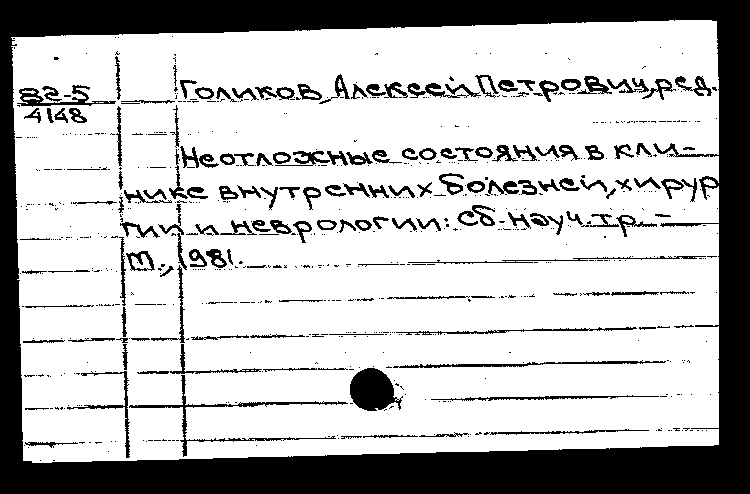 82-5
4148
Голиков, Алексей Петрович, ред.
Неотложные состояния в кли-
нике внутренних болезней, хирур
гии и неврологии: Сб. науч. тр. -
М., 1981.